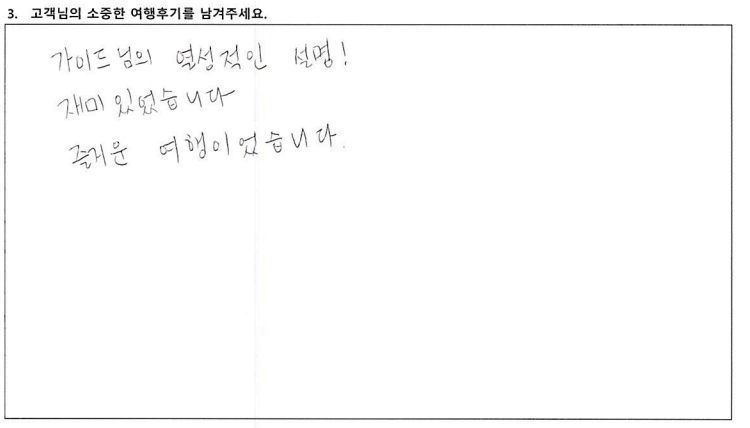 3. 고객님의 소중한 여행후기를 남겨주세요.
가이드님의 열성적인 설명!
재미있었습니다
즐거운 여행이었습니다.